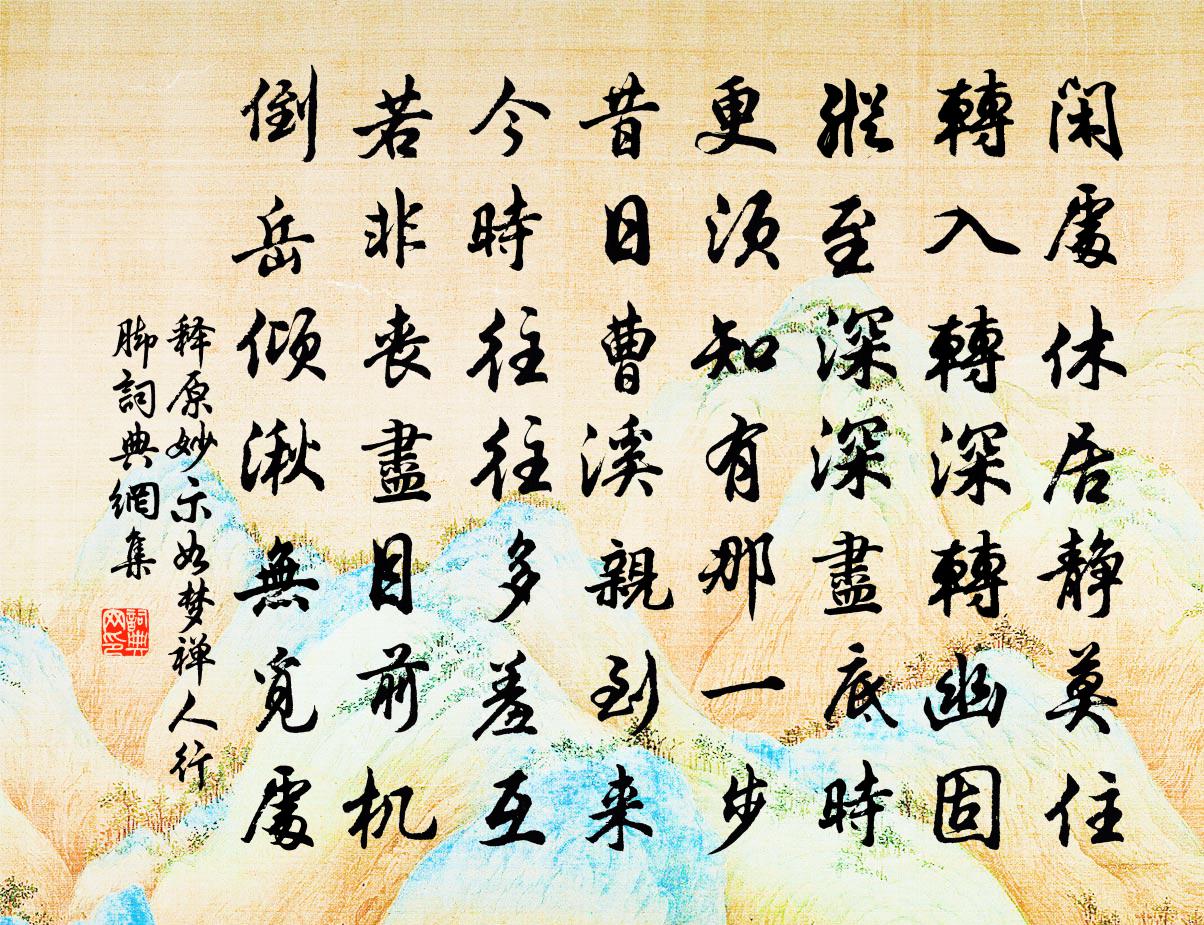 閑處休居靜莫住
轉入轉深轉幽固
縱至深深盡底時
更須知有那一步
昔日曹溪親到来
今時往往多差互
若非丧盡目前机
倒岳傾湫無覓處
释原妙示如梦禅人行
脚詞典網集
詞典网印